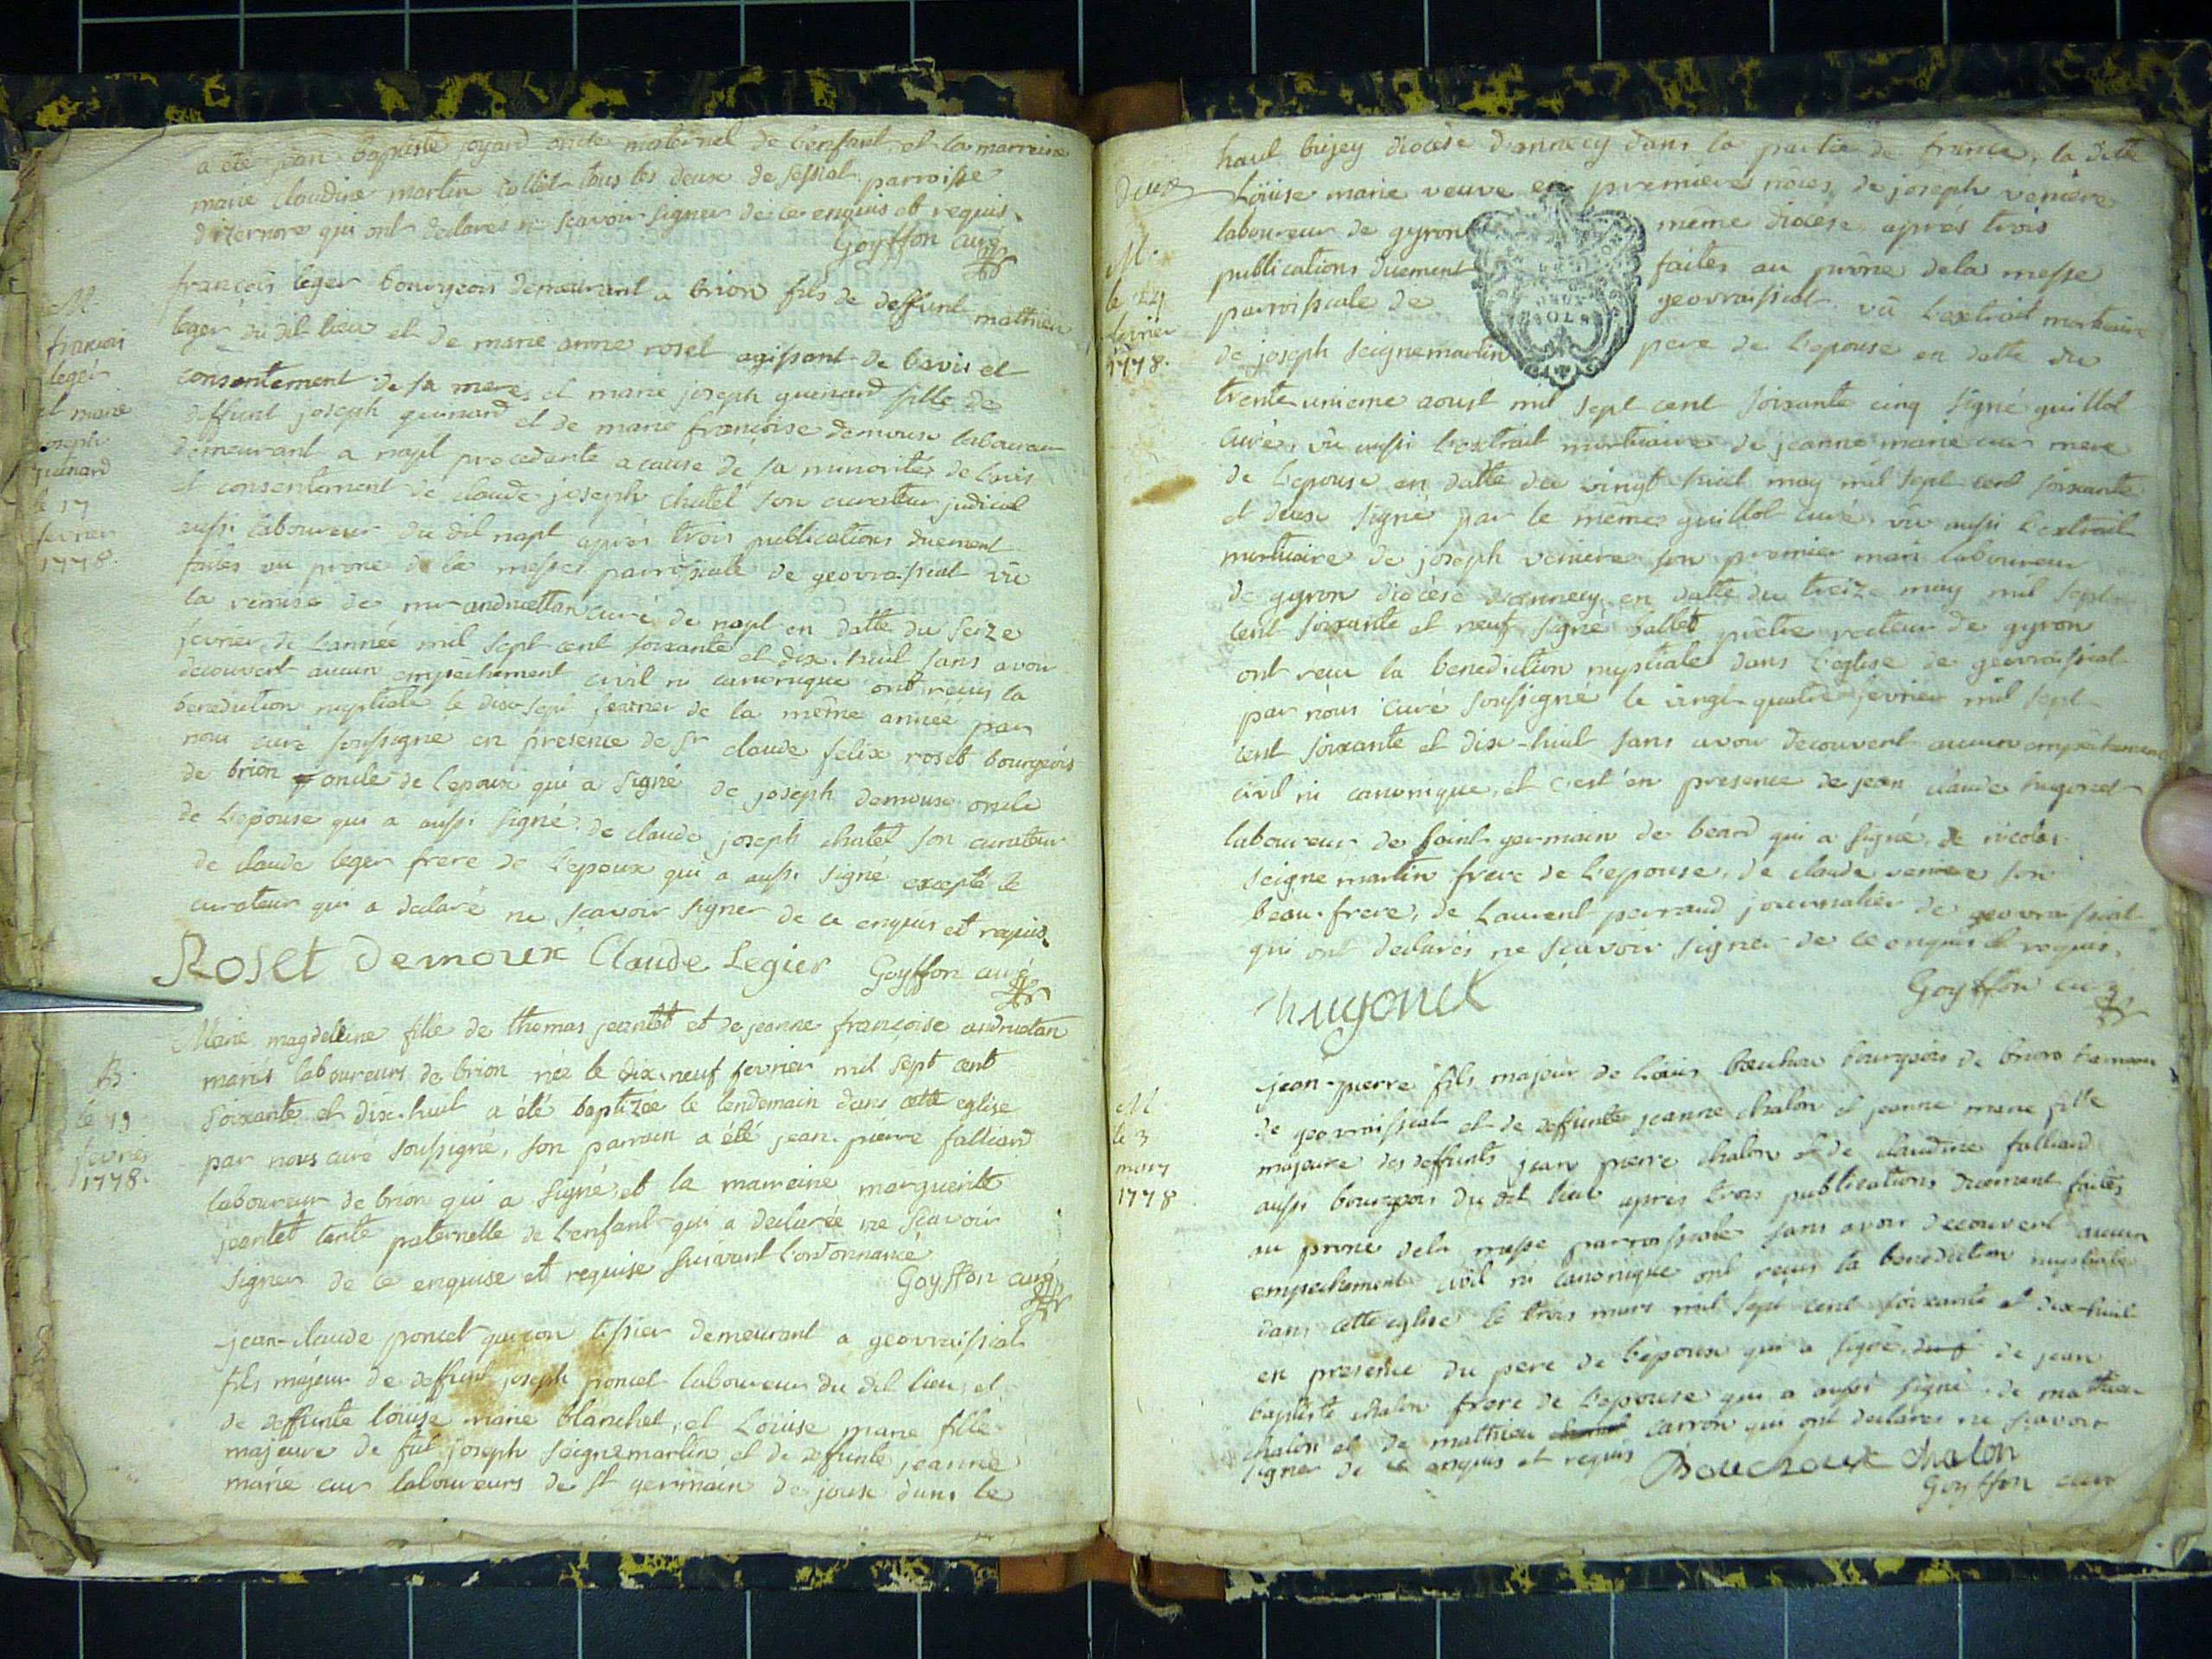 a été jean baptiste joyard oncle maternel de l'enfant, et la marreine
marie claudine martin tous les deux de sessiat parroisse
d'izernore qui ont declares ne scavoir signer de ce enquis et requis.
Goyffon curé
M
francois
leger
et marie
joseph
guenard
le 17
fevrier
1778.
françois leger bourgeois demeurant a brion fils de deffunt mathieu
leger du dit lieu et de marie anne roset agissant de l'avis et
consentement de sa mere, et marie joseph guenard fille de
deffunt joseph guenard et de marie françoise demoux laboureur
demeurant a napt procedante a cause de sa minorité, de l'avis
et consentement de claude joseph chatel son curateur judicial
aussi laboureur du dit napt aprés trois publications duement
faites au prone de la messe parroissiale de geovraissiat vu
la remise de mr andruettan curé de napt en datte du seize
fevrier de l'année mil sept cent soixante et dix-huit sans avoir
decouvert aucun empéchement civil ni canonique ont reçus la
benediction nuptiale le dix sept fevrier de la même année par
nous curé soussigné en presence de sr claude felix roset bourgeois
de brion oncle de l'epoux qui a signé de joseph demoux oncle
de l'epouse qui a aussi signé. de claude joseph chatel son curateur
de claude leger frere de l'epoux qui a aussi signé excepté le
curateur qui a declaré ne scavoir signer de ce enquis et requis.
Roset Demoux Claude Legier Goyffon curé
B.
le 19
fevrier
1778.
Marie magdeleine fille de thomas jeantet et de jeanne françoise andruetan
mariés laboureurs de brion née le dix-neuf fevrier mil sept cent
soixante et dix-huit a été baptizée le lendemain dans cette eglise
par nous curé soussigné, son parrain a été jean-pierre falliard
laboureur de brion qui a signé, et la marreine marguerite
jeantet tante paternelle de l'enfant qui a declarée ne scavoir
signer de ce enquise et requise suivant l'ordonnance
Goyffon curé
jean-claude poncet garçon tissier demeurant a geovraissiat
fils majeur de deffunt joseph poncet laboureur du dit lieu, et
de deffunte loüise marie blanchet, et Loüise marie fille
majeure de fut joseph seignemartin et de deffunte jeanne
marie cur laboureurs de st germain de joux dans le
deux
M.
le 24
fevrier
1778.
haut bujey diocèse d'annecy dans la partie de france, la ditte
Loüise marie veuve en premieres nôces de joseph veniere
laboureur de gyron même diocèse, aprés trois
publications duement faites au prône de la messe
parroissiale de geovraissiat. vû l'extrait mortuaire
de joseph seignemartin pere de l'epouse en datte du
trente unieme aoust mil sept cent soixante cinq signé guillot
curé, vu aussi l'extrait mortuaire de jeanne marie cur mere
de l'epouse en datte du vingt huit may mil sept cent soixante
et deux signé par le même guillot curé. vu aussi l'extrait
mortuaire de joseph veniere son premier mari laboureur
de gyron diocèse d'annecy en datte du treize may mil sept
cent soixante et neuf signé ballet prêtre recteur de gyron
ont reçu la benediction nuptiale dans l'eglise de geovraissiat
par nous curé soussigné le vingt-quatre fevrier mil sept
cent soixante et dix-huit sans avoir decouvert aucun empêchement
civil ni canonique, et c'est en presence de jean claude hugonet
laboureur de saint germain de beard qui a signé, de nicolas
seigne martin frere de l'epouse, de claude veniere son
beau-frere, de Laurent perraud journalier de geovraissiat
qui ont declarés ne scavoir signer de ce enquis et requis.
hugonet
Goyffon curé
M
le 3
mars
1778
jean-pierre fils majeur de loüis bouchoux bourgeois de brion hameau
de geovraissiat et de deffunte jeanne chalon et jeanne marie fille
majeure des deffunts jean pierre chalon et de claudine falliard
aussi bourgeois du dit lieu aprés trois publications duement faites
au prone de la messe parroissiale sans avoir decouvert aucun
empechement civil ni canonique ont reçus la benediction nuptiale
dans cette eglise le trois mars mil sept cent soixante et dix-huit
en presence du pere de l'époux qui a signé, de jean
baptiste chalon frere de l'epouse qui a aussi signé. de mathieu
chalon et de mathieu carron qui ont declares ne scavoir
signer de ce enquis et requis Bouchoux chalon
Goyffon curé